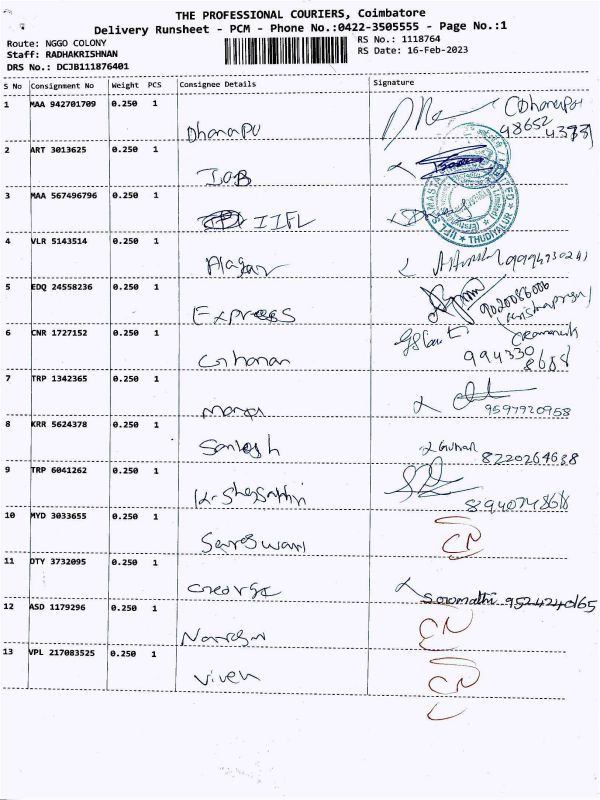 THE PROFESSIONAL COURIERS, Coimbatore
Delivery Runsheet - PCM - Phone No.:0422-3505555 - Page No.:1
Route: NGGO COLONY RS No.: 1118764
Staff: RADHAKRISHNAN RS Date: 16-Feb-2023
DRS No.: DCJB111876401
S No Consignment No Weight PCS Consignee Details Signature
1 MAA 942701709 0.250 1 Dhanapu
98652
2 ART 3013625 0.250 1 IOB
3 MAA 567496796 0.250 1 IIFL
IIFL THUDIYALUR
4 VLR 5143514 0.250 1 Alagar
5 EDQ 24558236 0.250 1 Express 9020086006
6 CNR 1727152 0.250 1
994330
8688
7 TRP 1342365 0.250 1
9597920958
8 KRR 5624378 0.250 1 Santosh Gunan
8220264638
9 TRP 6041262 0.250 1
10 MYD 3033655 0.250 1 CN
11 DTY 3732095 0.250 1 George
12 ASD 1179296 0.250 1 CN
13 VPL 217083525 0.250 1 Vivek CN